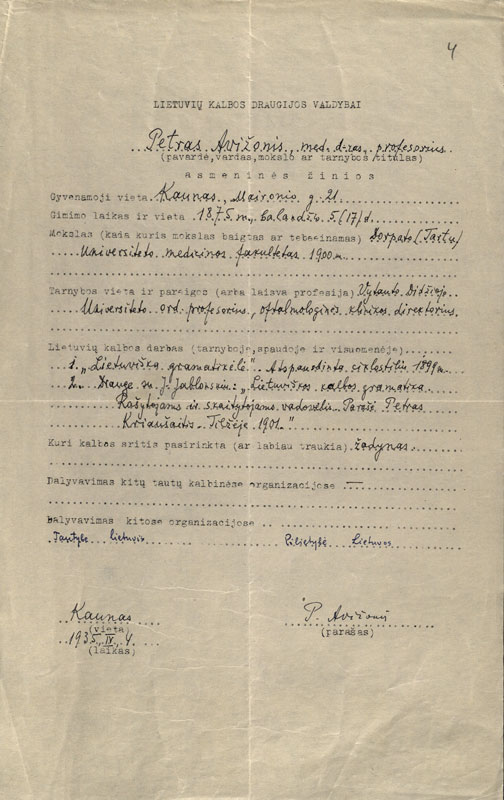 4
LIETUVIŲ KALBOS DRAUGIJOS VALDYBAI
Petras Avižonis, med. d-ras, profesorius
(pavardė, vardas, mokslo ar tarnybos titulas)
asmeninės žinios
Gyvenamoji vieta Kaunas, Maironio g. 21.
Gimimo laikas ir vieta 1875 m. balandžio 5/(17) d.
Mokslas (kada kuris mokslas baigtas ar tebeinamas) Dorpato (Tartu)
Universiteto medicinos fakultetas 1900 m.
Tarnybos vieta ir pareigos (arba laisva profesija) Vytauto Didžiojo
Universiteto ord. profesorius, oftalmologinės klinikos direktorius.
Lietuvių kalbos darbas (tarnyboje, spaudoje ir visuomenėje)
1. „Lietuviška gramatikėlė". Atspaudinta ciklostiliu 1899 m.
2. Drauge su J. Jablonskiu: „Lietuviškos kalbos gramatika.
Rašytojams ir skaitytojams vadovėlis. Parašė Petras
Kriaušaitis. Tilžėje 1901."
Kuri kalbos sritis pasirinkta (ar labiau traukia) žodynas.
Dalyvavimas kitų tautų kalbinėse organizacijose —
Dalyvavimas kitose organizacijose
Tautybė lietuvis Pilietybė Lietuvos
Kaunas P. Avižonis
(vieta) (parašas)
1935, IV, 4.
(laikas)